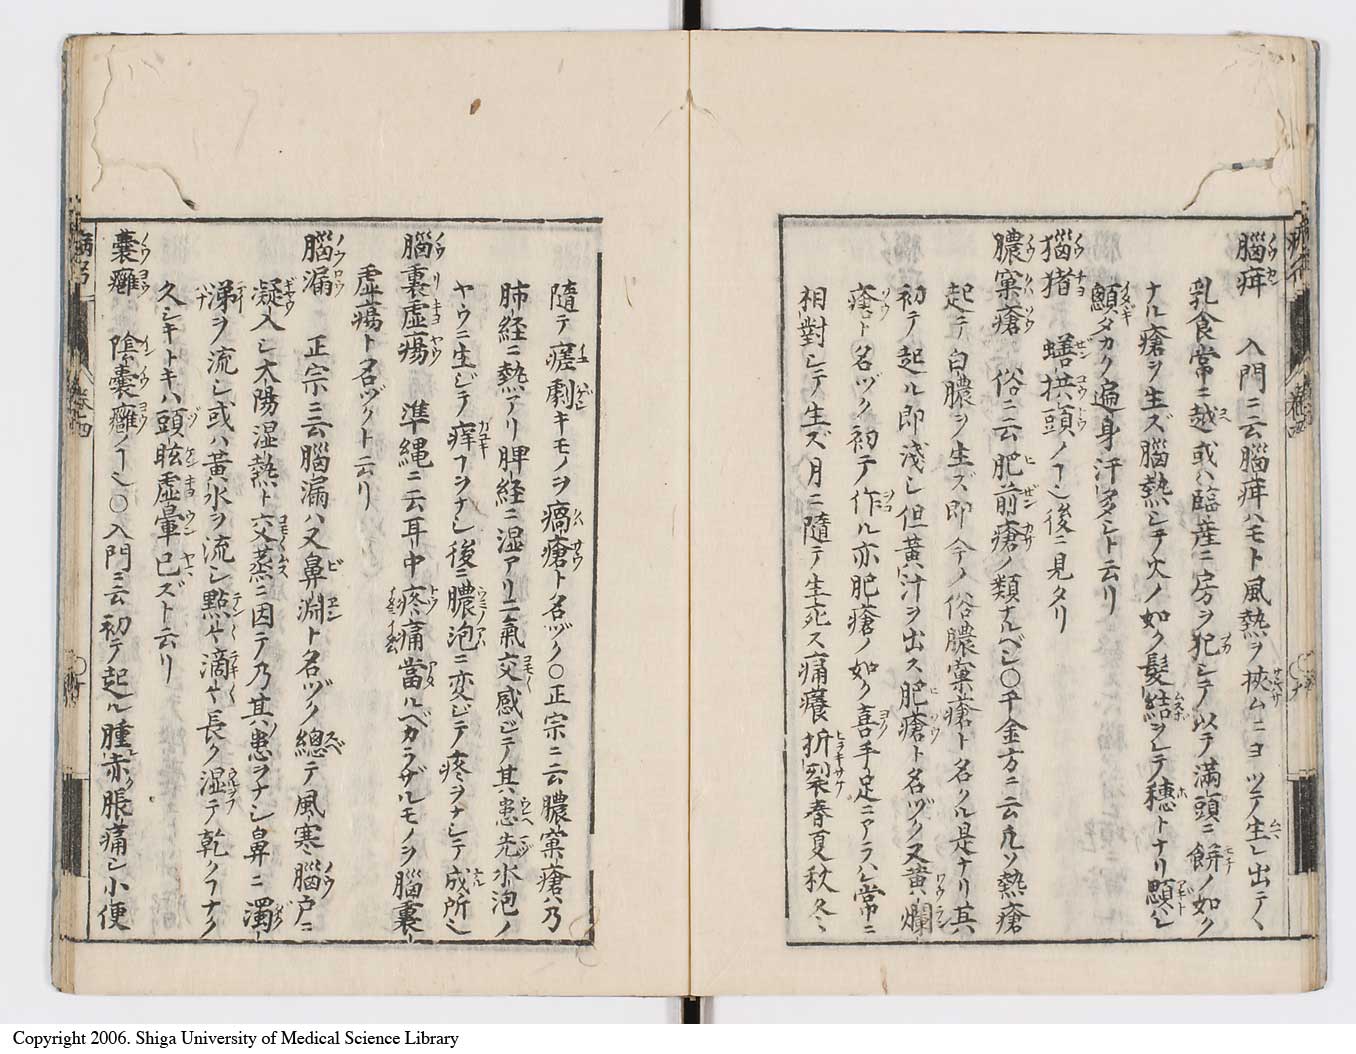 腦疳 入門ニ云腦疳ハモト風熱ヲ挾ムニヨツテ生レ出テ〱
乳食常ニ越或ハ臨産ニ房ヲ犯シテ以テ滿頭ニ餅ノ如ク
ナル瘡ヲ生ズ腦熱シテ火ノ如ク髮結ヲレテ穗トナリ顋ヒレ
顱タカク遍身汗多シト云リ
猫猪 蟮拱頭ノヿ後ニ見タリ
膿窠瘡 俗ニ云肥前瘡ノ類ナルベシ○千金方ニ云凡ソ熱瘡
起テ白膿ヲ生ズ即今ノ俗膿窠瘡ト名クル是ナリ其
初テ起ル即淺シ但黄汁ヲ出ス肥瘡ト名ヅク又黄爛
瘡ト名ヅク初テ作ル亦肥瘡ノ如ク喜手足ニアラハレ常ニ
相對シテ生ズ月ニ隨テ生死ス痛癢折裂春夏秋冬ニ
隨テ瘥劇キモノヲ瘑瘡ト名ヅク○正宗ニ云膿窠瘡ハ乃
肺經ニ熱アリ脾經ニ湿アリ二氣交感ジテ其患先水泡ノ
ヤウニ生ジテ痒フヲナシ後ニ膿泡ニ変ジテ疼ヲナシテ成所也
腦裏虚瘍 準縄ニ云耳中疼痛當ルベカラザルモノヲ腦裏ノ
虚瘍ト名ヅクト云リ
腦漏 正宗ニ云腦漏ハ又鼻淵ト名ヅク總テ風寒腦戸ニ
凝入シ太陽湿熱ト交蒸ニ因テ乃其患ヲナシ鼻ニ濁
涕ヲ流シ或ハ黄水ヲ流シ點〱滴〱長ク湿テ乾クヿナク
久シキトキハ頭眩虚暈已ズト云リ
嚢癰 陰嚢癰ノヿ也○入門ニ云初テ起ル腫赤脹痛シ小便
Copyright 2006. Shiga University of Medical Science Library